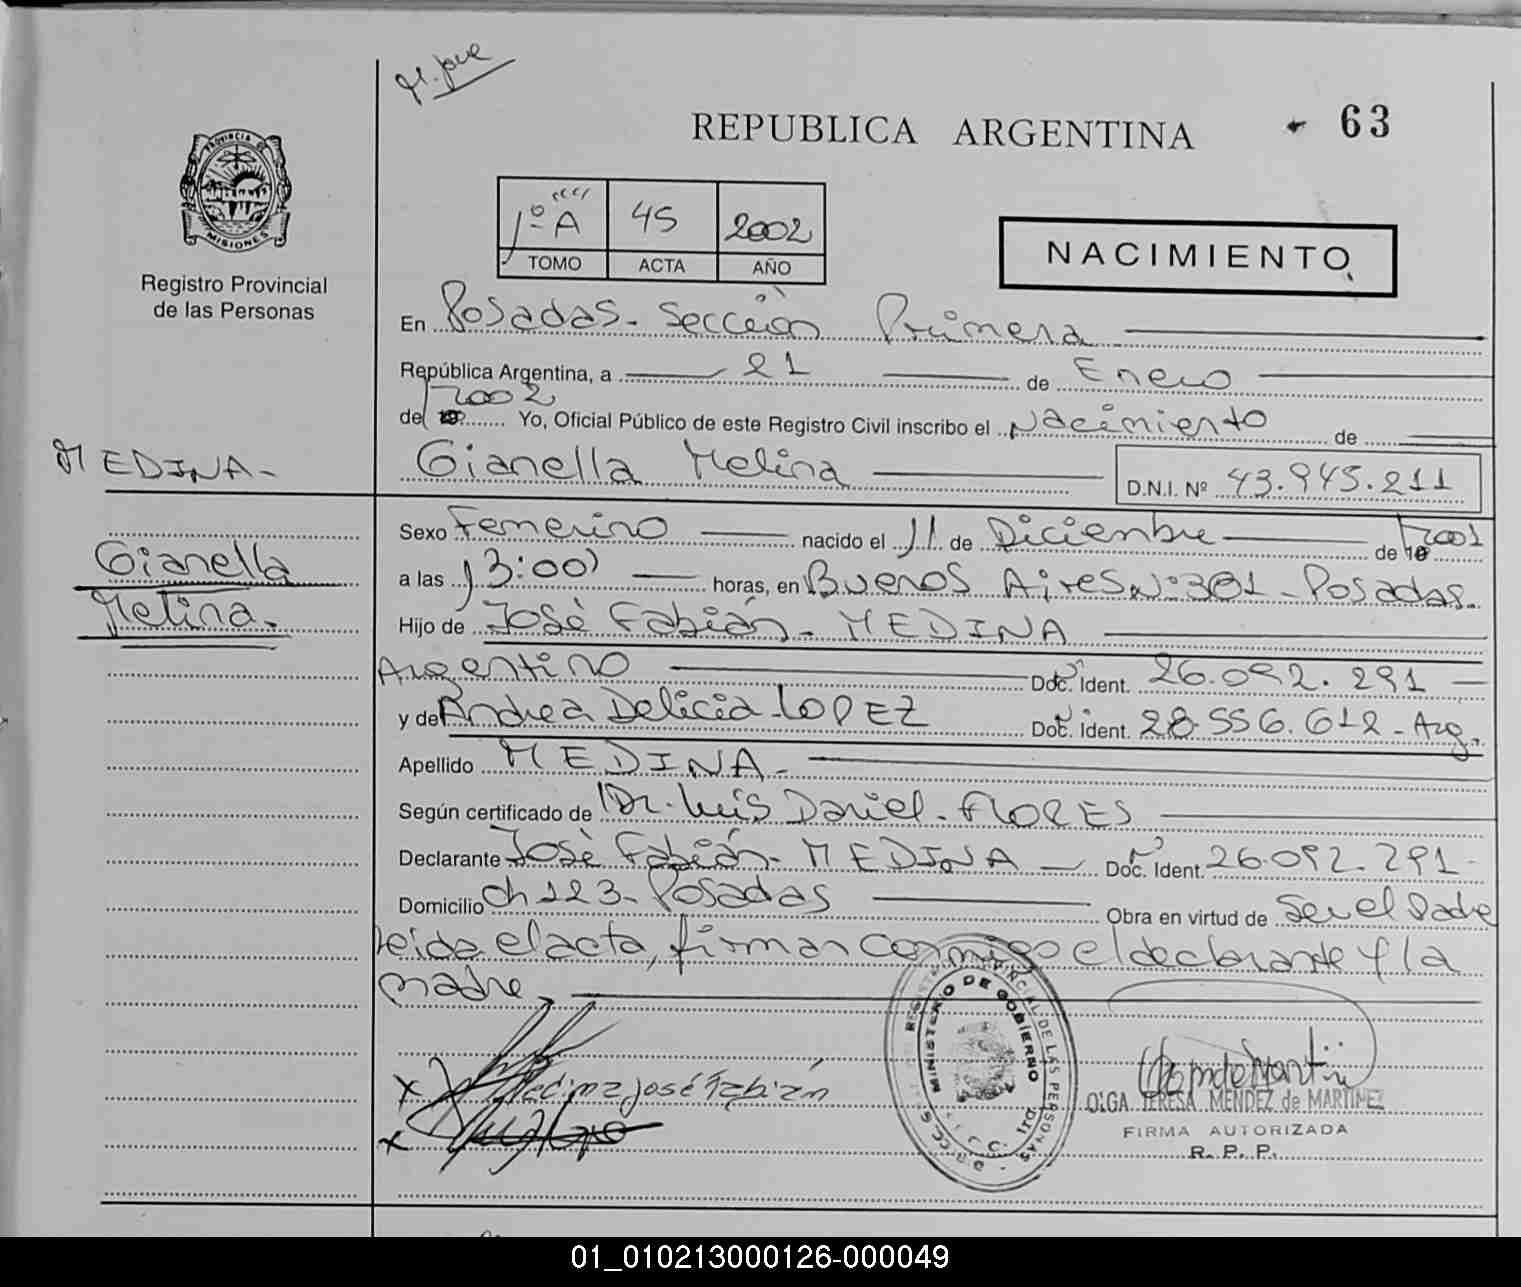 REPUBLICA ARGENTINA
63
PROVINCIA DE
MISIONES
Registro Provincial
de las Personas
1º A 45 2002
TOMO ACTA AÑO
NACIMIENTO
En Posadas - Sección Primera
República Argentina, a 21 de Enero
de 2002 Yo, Oficial Público de este Registro Civil inscribo el Nacimiento de
MEDINA -
Gianella Melina D.N.I. Nº 43.945.211
Gianella
Melina.
Sexo Femenino nacido el 11 de Diciembre de 2001
a las 13:00 horas, en Buenos Aires Nº 381 - Posadas.
Hijo de José Fabián - MEDINA
Argentino Doc. Ident. 26.092.291
y de Andrea Delicia - LOPEZ Doc. Ident. 28.556.612 - Arg.
Apellido MEDINA -
Según certificado de Dr. Luis Daniel - FLORES
Declarante José Fabián - MEDINA Doc. Ident. 26.092.291 -
Domicilio Ch 123 - Posadas Obra en virtud de Ser el Padre
leida el acta, firman conmigo el declarante y la
madre
x Medina José Fabián
x
MINISTERIO DE GOBIERNO
DE LAS PERSONAS
OLGA TERESA MENDEZ de MARTINEZ
FIRMA AUTORIZADA
R. P. P.
01_010213000126-000049